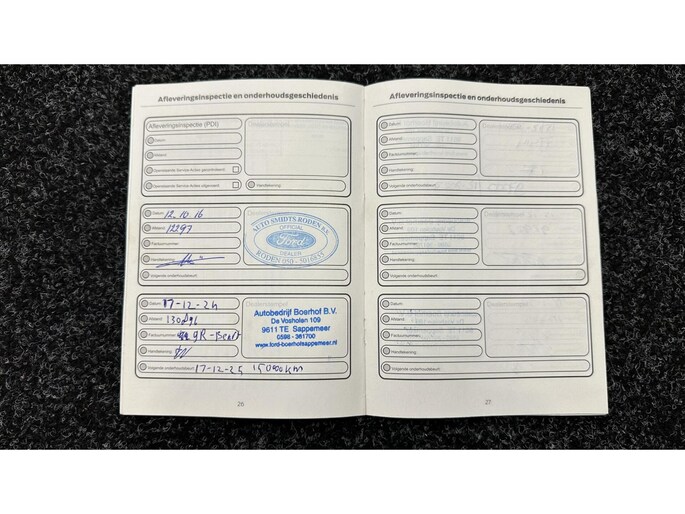 Afleveringsinspectie en onderhoudsgeschiedenis
Afleveringsinspectie (PDI)
Datum:
Afstand:
Gereedstaande Service-Acties gecontroleerd:
Gereedstaande Service-Acties uitgevoerd:
Handtekening:
Datum: 12.10.16
Afstand: 12297
Factuurnummer:
Handtekening:
Volgende onderhoudsbeurt:
AUTO SMIDTS RODEN B.V.
OFFICIAL
Ford
DEALER
RODEN 050 - 5016855
Datum: 17-12-24
Afstand:
Factuurnummer: gR-
Handtekening:
Volgende onderhoudsbeurt: 17-12-25 km
Dealerstempel
Autobedrijf Boerhof B.V.
De Vosholen 109
9611 TE Sappemeer
0598 - 361700
www.ford-boerhofsappemeer.nl
26
Afleveringsinspectie en onderhoudsgeschiedenis
Datum:
Afstand:
Factuurnummer:
Handtekening:
Volgende onderhoudsbeurt:
Datum:
Afstand:
Factuurnummer:
Handtekening:
Volgende onderhoudsbeurt:
Datum:
Afstand:
Factuurnummer:
Handtekening:
Volgende onderhoudsbeurt:
27